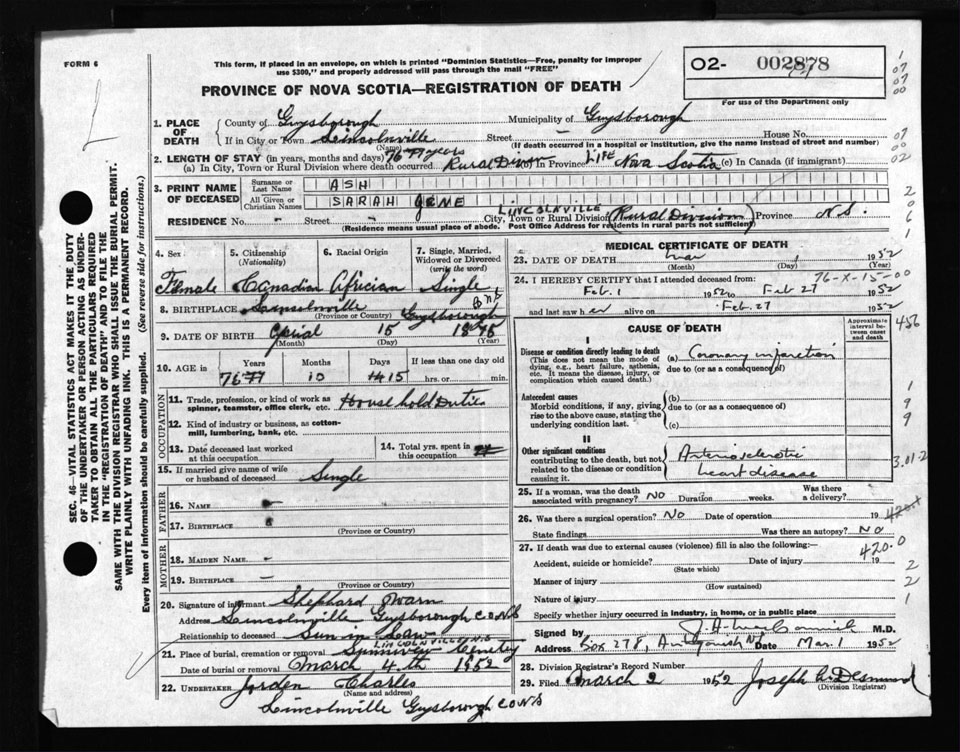 FORM 6
This form, if placed in an envelope, on which is printed "Dominion Statistics—Free, penalty for improper
use $300," and properly addressed will pass through the mail "FREE"
O2- 002878
For use of the Department only
PROVINCE OF NOVA SCOTIA—REGISTRATION OF DEATH
1. PLACE OF DEATH
County of Guysborough Municipality of Guysborough
If in City or Town Lincolnville Street House No.
(Name) (If death occurred in a hospital or institution, give its NAME instead of street and number)
2. LENGTH OF STAY (in years, months and days) 76 years
(a) In City, Town or Rural Division where death occurred Rural Division Province Life Nova Scotia (c) In Canada (if immigrant)
3. PRINT NAME OF DECEASED
Surname or Last Name ASH
All Given or Christian Names SARAH JENE
RESIDENCE No. - Street - City, Town or Rural Division LINCOLNVILLE (Rural Division) Province N.S.
(Residence means usual place of abode. Post Office Address for residents in rural parts not sufficient)
4. Sex Female
5. Citizenship (Nationality) Canadian
6. Racial Origin African
7. Single, Married, Widowed or Divorced (write the word) Single
8. BIRTHPLACE Lincolnville Guysborough
(Province or Country)
9. DATE OF BIRTH Aprial 15 1875
(Month) (Day) (Year)
10. AGE in Years Months Days If less than one day old
76 10 15 hrs. or min.
OCCUPATION
11. Trade, profession, or kind of work as spinner, teamster, office clerk, etc. House hold Duties
12. Kind of industry or business, as cotton-mill, lumbering, bank, etc.
13. Date deceased last worked at this occupation
14. Total yrs. spent in this occupation
15. If married give name of wife or husband of deceased Single
FATHER
16. NAME -
17. BIRTHPLACE
(Province or Country)
MOTHER
18. MAIDEN NAME -
19. BIRTHPLACE -
(Province or Country)
20. Signature of informant Shephard Warn
Address Lincolnville Guysborough CO NS
Relationship to deceased Sun in Law
21. Place of burial, cremation or removal LINCOLNVILLE N.S. Cemetry
Date of burial or removal March 4th 1952
22. UNDERTAKER Jorden Charles
(Name and address)
Lincolnville Guysborough CO NS
MEDICAL CERTIFICATE OF DEATH
23. DATE OF DEATH Mar 1 1952
(Month) (Day)
76-X-15-00
24. I HEREBY CERTIFY that I attended deceased from:
Feb. 1 1952 to Feb 27 1952
and last saw her alive on Feb. 27 1952
CAUSE OF DEATH
Approximate interval between onset and death
456
I
Disease or condition directly leading to death
(This does not mean the mode of dying, e.g., heart failure, asthenia, etc. It means the disease, injury, or complication which caused death.)
(a) Coronary infarction
due to (or as a consequence of)
Antecedent causes
Morbid conditions, if any, giving rise to the above cause, stating the underlying condition last.
(b)
due to (or as a consequence of)
(c)
II
Other significant conditions
contributing to the death, but not related to the disease or condition causing it.
Arteriosclerotic
heart disease
3.01-2
25. If a woman, was the death associated with pregnancy? NO Duration weeks. Was there a delivery?
26. Was there a surgical operation? NO Date of operation 19
State findings Was there an autopsy? NO
27. If death was due to external causes (violence) fill in also the following:— 420.0
Accident, suicide or homicide? Date of injury 19
(State which)
Manner of injury
(How sustained)
Nature of injury
Specify whether injury occurred in industry, in home, or in public place
Signed by M.D.
Address Box 278, Antigonish NS Date Mar. 1 1952
28. Division Registrar's Record Number
29. Filed March 2 1952 Joseph A. Desmond
(Division Registrar)
SEC. 46—VITAL STATISTICS ACT MAKES IT THE DUTY
OF THE UNDERTAKER OR PERSON ACTING AS UNDER-
TAKER TO OBTAIN ALL THE PARTICULARS REQUIRED
IN THE "REGISTRATION OF DEATH" AND TO FILE THE
SAME WITH THE DIVISION REGISTRAR WHO SHALL ISSUE THE BURIAL PERMIT.
WRITE PLAINLY WITH UNFADING INK. THIS IS A PERMANENT RECORD.
Every item of information should be carefully supplied. (See reverse side for instructions.)